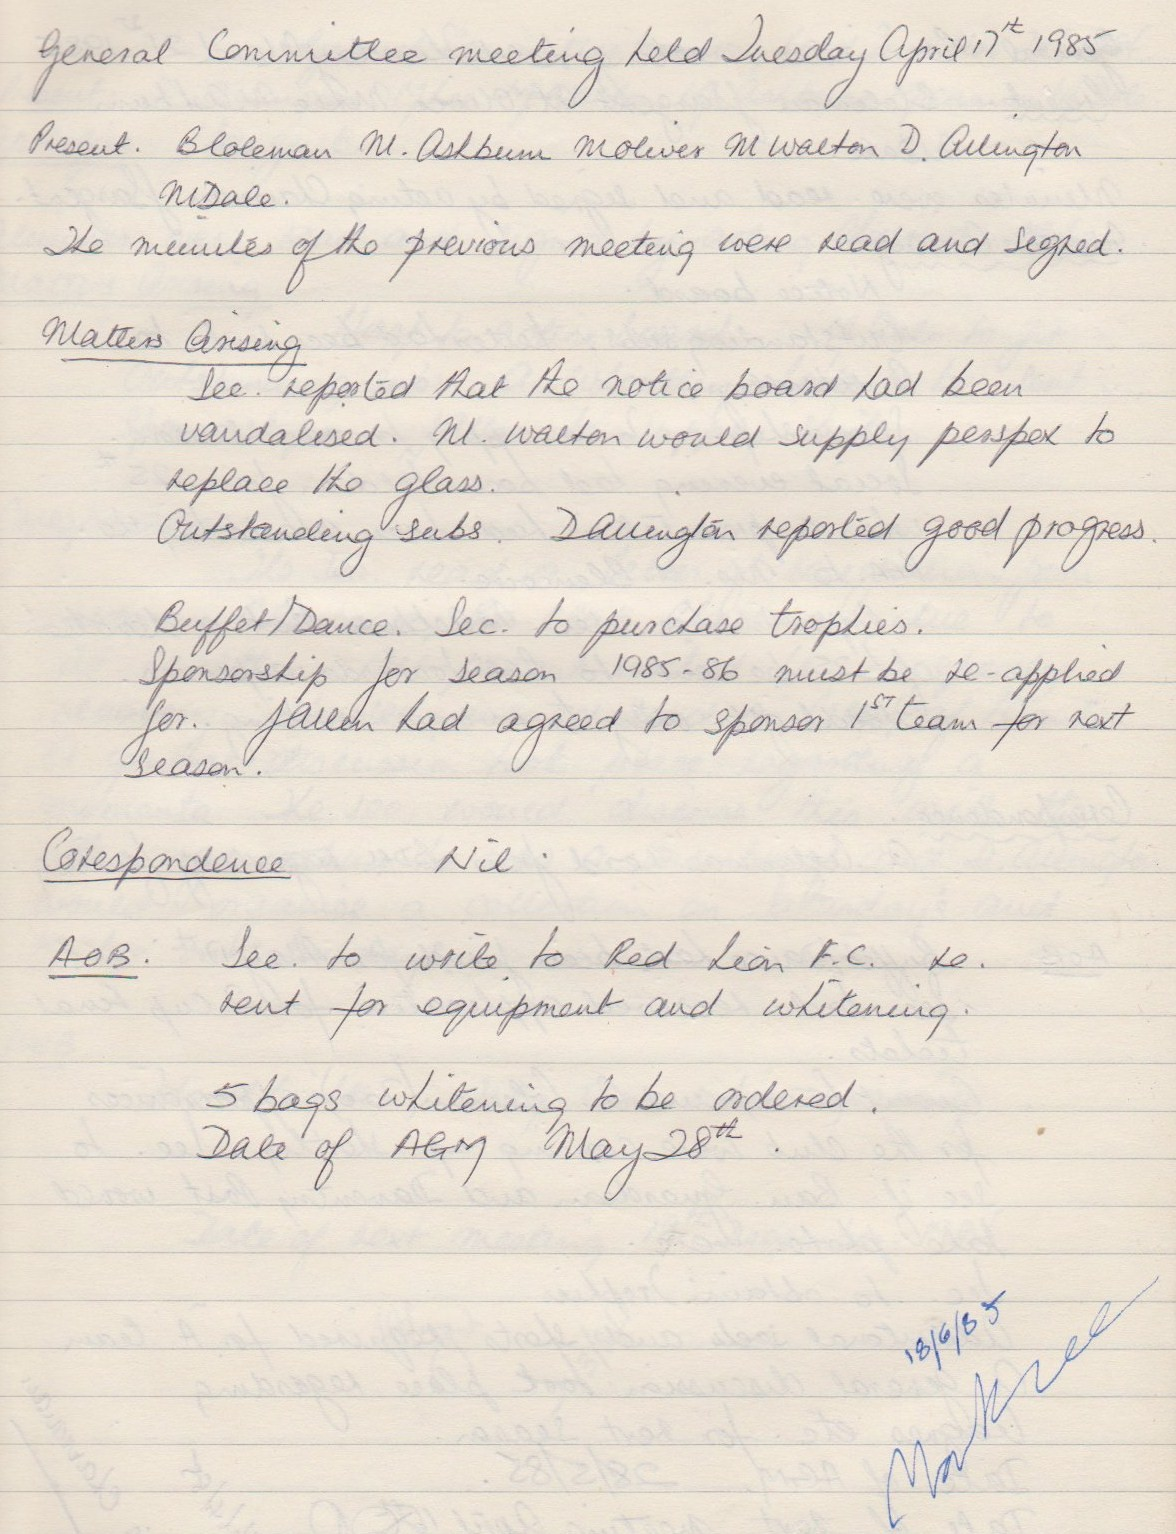 General Committee meeting held Tuesday April 17th 1985
Present. B Coleman M. Ashburn M Oliver M Walton D. Arlington
M Dale.
The minutes of the previous meeting were read and signed.
Matters Arising
Sec. reported that the notice board had been
vandalised. M. Walton would supply perspex to
replace the glass.
Outstanding subs. D Arlington reported good progress.
Buffet/Dance. Sec. to purchase trophies.
Sponsorship for season 1985-86 must be re-applied
for. J Allen had agreed to sponsor 1ST team for next
season.
Corespondence Nil.
AOB. Sec. to write to Red Lion F.C. re.
rent for equipment and whitening.
5 bags whitening to be ordered.
Date of AGM May 28th.
18/6/85